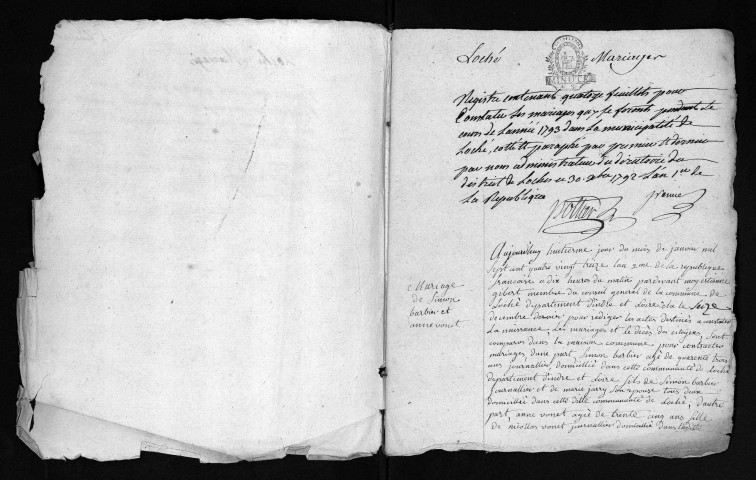 Loché Mariages
Registre contenant quatorze feuillets pour
Constater les mariages qui se feront pendant le
cours de l'année 1793 dans la municipalité de
Loché, cotté et paraphé par premier et dernier
par nous administrateur du directoire du
district de Loches ce 30 Xbre 1792 l'an 1er de
La Republique
Mariage
de Simon
barbier et
anne vonet
Aujourd'huy huitieme jour du mois de janvier mil
Sept cent quatre vingt treize lan 2me de la republique
francoise a dix heures du matin pardevant moy
gibert membre du conseil general de la commune de
Loché departement d'indre et Loire elu le Seize
decembre dernier pour rediger les actes destinés a constater
La naissance, Les mariages et le decès des citoyens, Sont
comparus dans la maison commune pour contracter
mariages, dune part, Simon barbier agé de quarente trois
ans journallier, domicillié dans cette communauté de Loché
departement d'indre et Loire fils de Simon barbier
Journallier et de marie jarry Son epouse tous deux
domicillié dans cette ditte communauté de Loché, d'autre
part, anne vonet agée de trente cinq ans fille
de nicollas vonet journallier domicillié dans